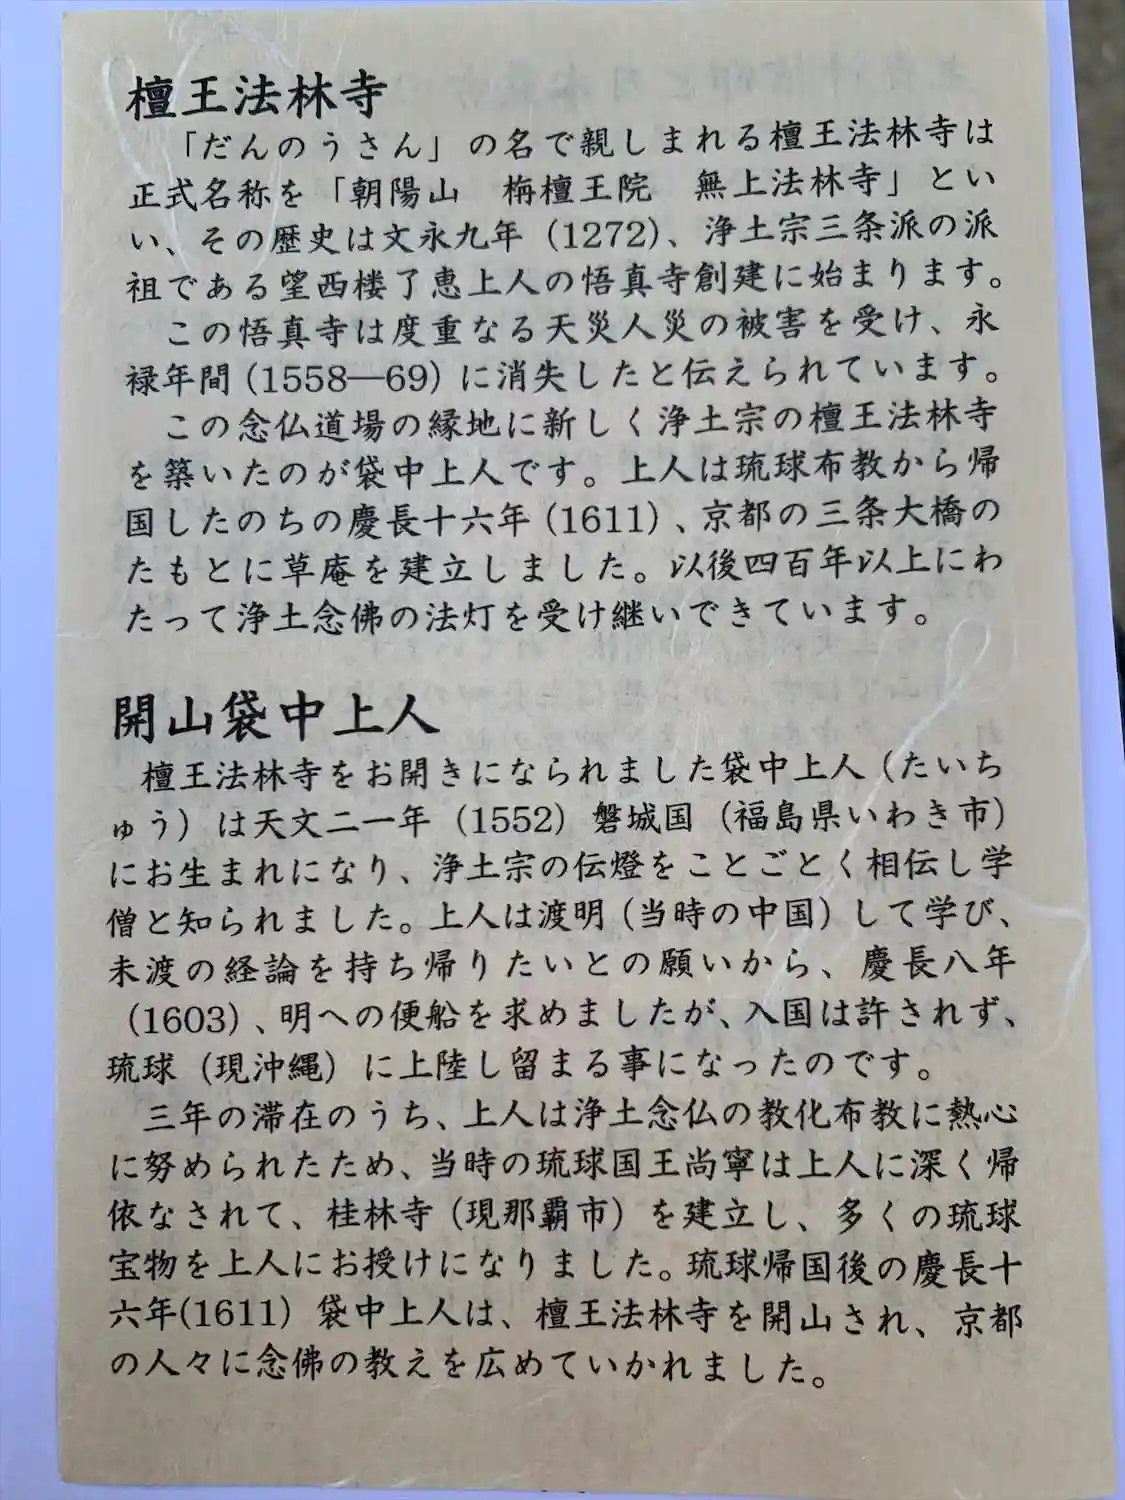 檀王法林寺
「だんのうさん」の名で親しまれる檀王法林寺は
正式名称を「朝陽山　栴檀王院　無上法林寺」とい
い、その歴史は文永九年（1272）、浄土宗三条派の派
祖である望西楼了恵上人の悟真寺創建に始まります。
この悟真寺は度重なる天災人災の被害を受け、永
禄年間（1558―69）に消失したと伝えられています。
この念仏道場の縁地に新しく浄土宗の檀王法林寺
を築いたのが袋中上人です。上人は琉球布教から帰
国したのちの慶長十六年（1611）、京都の三条大橋の
たもとに草庵を建立しました。以後四百年以上にわ
たって浄土念佛の法灯を受け継いできています。
開山袋中上人
檀王法林寺をお開きになられました袋中上人（たいち
ゅう）は天文二一年（1552）磐城国（福島県いわき市）
にお生まれになり、浄土宗の伝燈をことごとく相伝し学
僧と知られました。上人は渡明（当時の中国）して学び、
未渡の経論を持ち帰りたいとの願いから、慶長八年
（1603）、明への便船を求めましたが、入国は許されず、
琉球（現沖縄）に上陸し留まる事になったのです。
三年の滞在のうち、上人は浄土念仏の教化布教に熱心
に努められたため、当時の琉球国王尚寧は上人に深く帰
依なされて、桂林寺（現那覇市）を建立し、多くの琉球
宝物を上人にお授けになりました。琉球帰国後の慶長十
六年(1611）袋中上人は、檀王法林寺を開山され、京都
の人々に念佛の教えを広めていかれました。